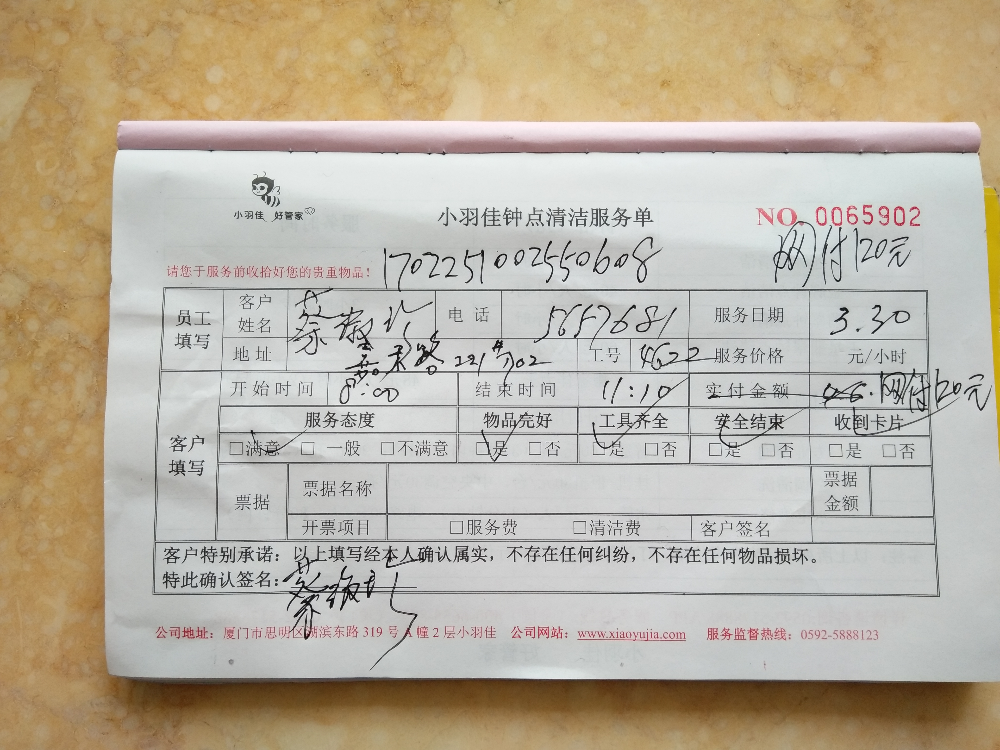 小羽佳 好管家
小羽佳钟点清洁服务单
NO. 0065902
网付120元
请您于服务前收拾好您的贵重物品！
1702251002550608
员工填写 客户姓名 蔡 电话 5657681 服务日期 3.30
地址 路 221 702 工号 4622 服务价格 元/小时
客户填写 开始时间 8:00 结束时间 11:10 实付金额 网付120元
服务态度 物品完好 工具齐全 安全结束 收到卡片
□满意 □一般 □不满意 □是 □否 □是 □否 □是 □否 □是 □否
票据 票据名称 票据金额
开票项目 □服务费 □清洁费 客户签名
客户特别承诺：以上填写经本人确认属实，不存在任何纠纷，不存在任何物品损坏。
特此确认签名：
公司地址：厦门市思明区湖滨东路 319 号 A 幢 2 层小羽佳 公司网站：www.xiaoyujia.com 服务监督热线：0592-5888123